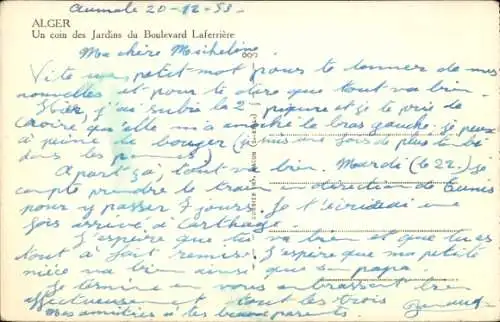 Aumale 20-12-53.
ALGER
Un coin des Jardins du Boulevard Laferrière
Ma chère Micheline,
Vite un petit mot pour te donner de mes
nouvelles et pour te dire que tout va bien.
Hier, j'ai subi la 2e piqure et je te prie de
croire qu'elle m'a le bras gauche. je peux
à peine bouger (je suis une fois de plus
dans les
A part ça, tout va bien. Mardi (le 22) je
compte prendre le train en direction de Tunis
pour y passer 7 jours. Je t'écrirai une
fois arrivé à Carthage.
J'espère que tu va bien et que tu es
tout à fait remise. J'espère que ma petite
nièce va bien ainsi que son papa.
Je termine en vous embrassant bien
affectueusement tout les trois
Mes amitiés à tes beaux parents.